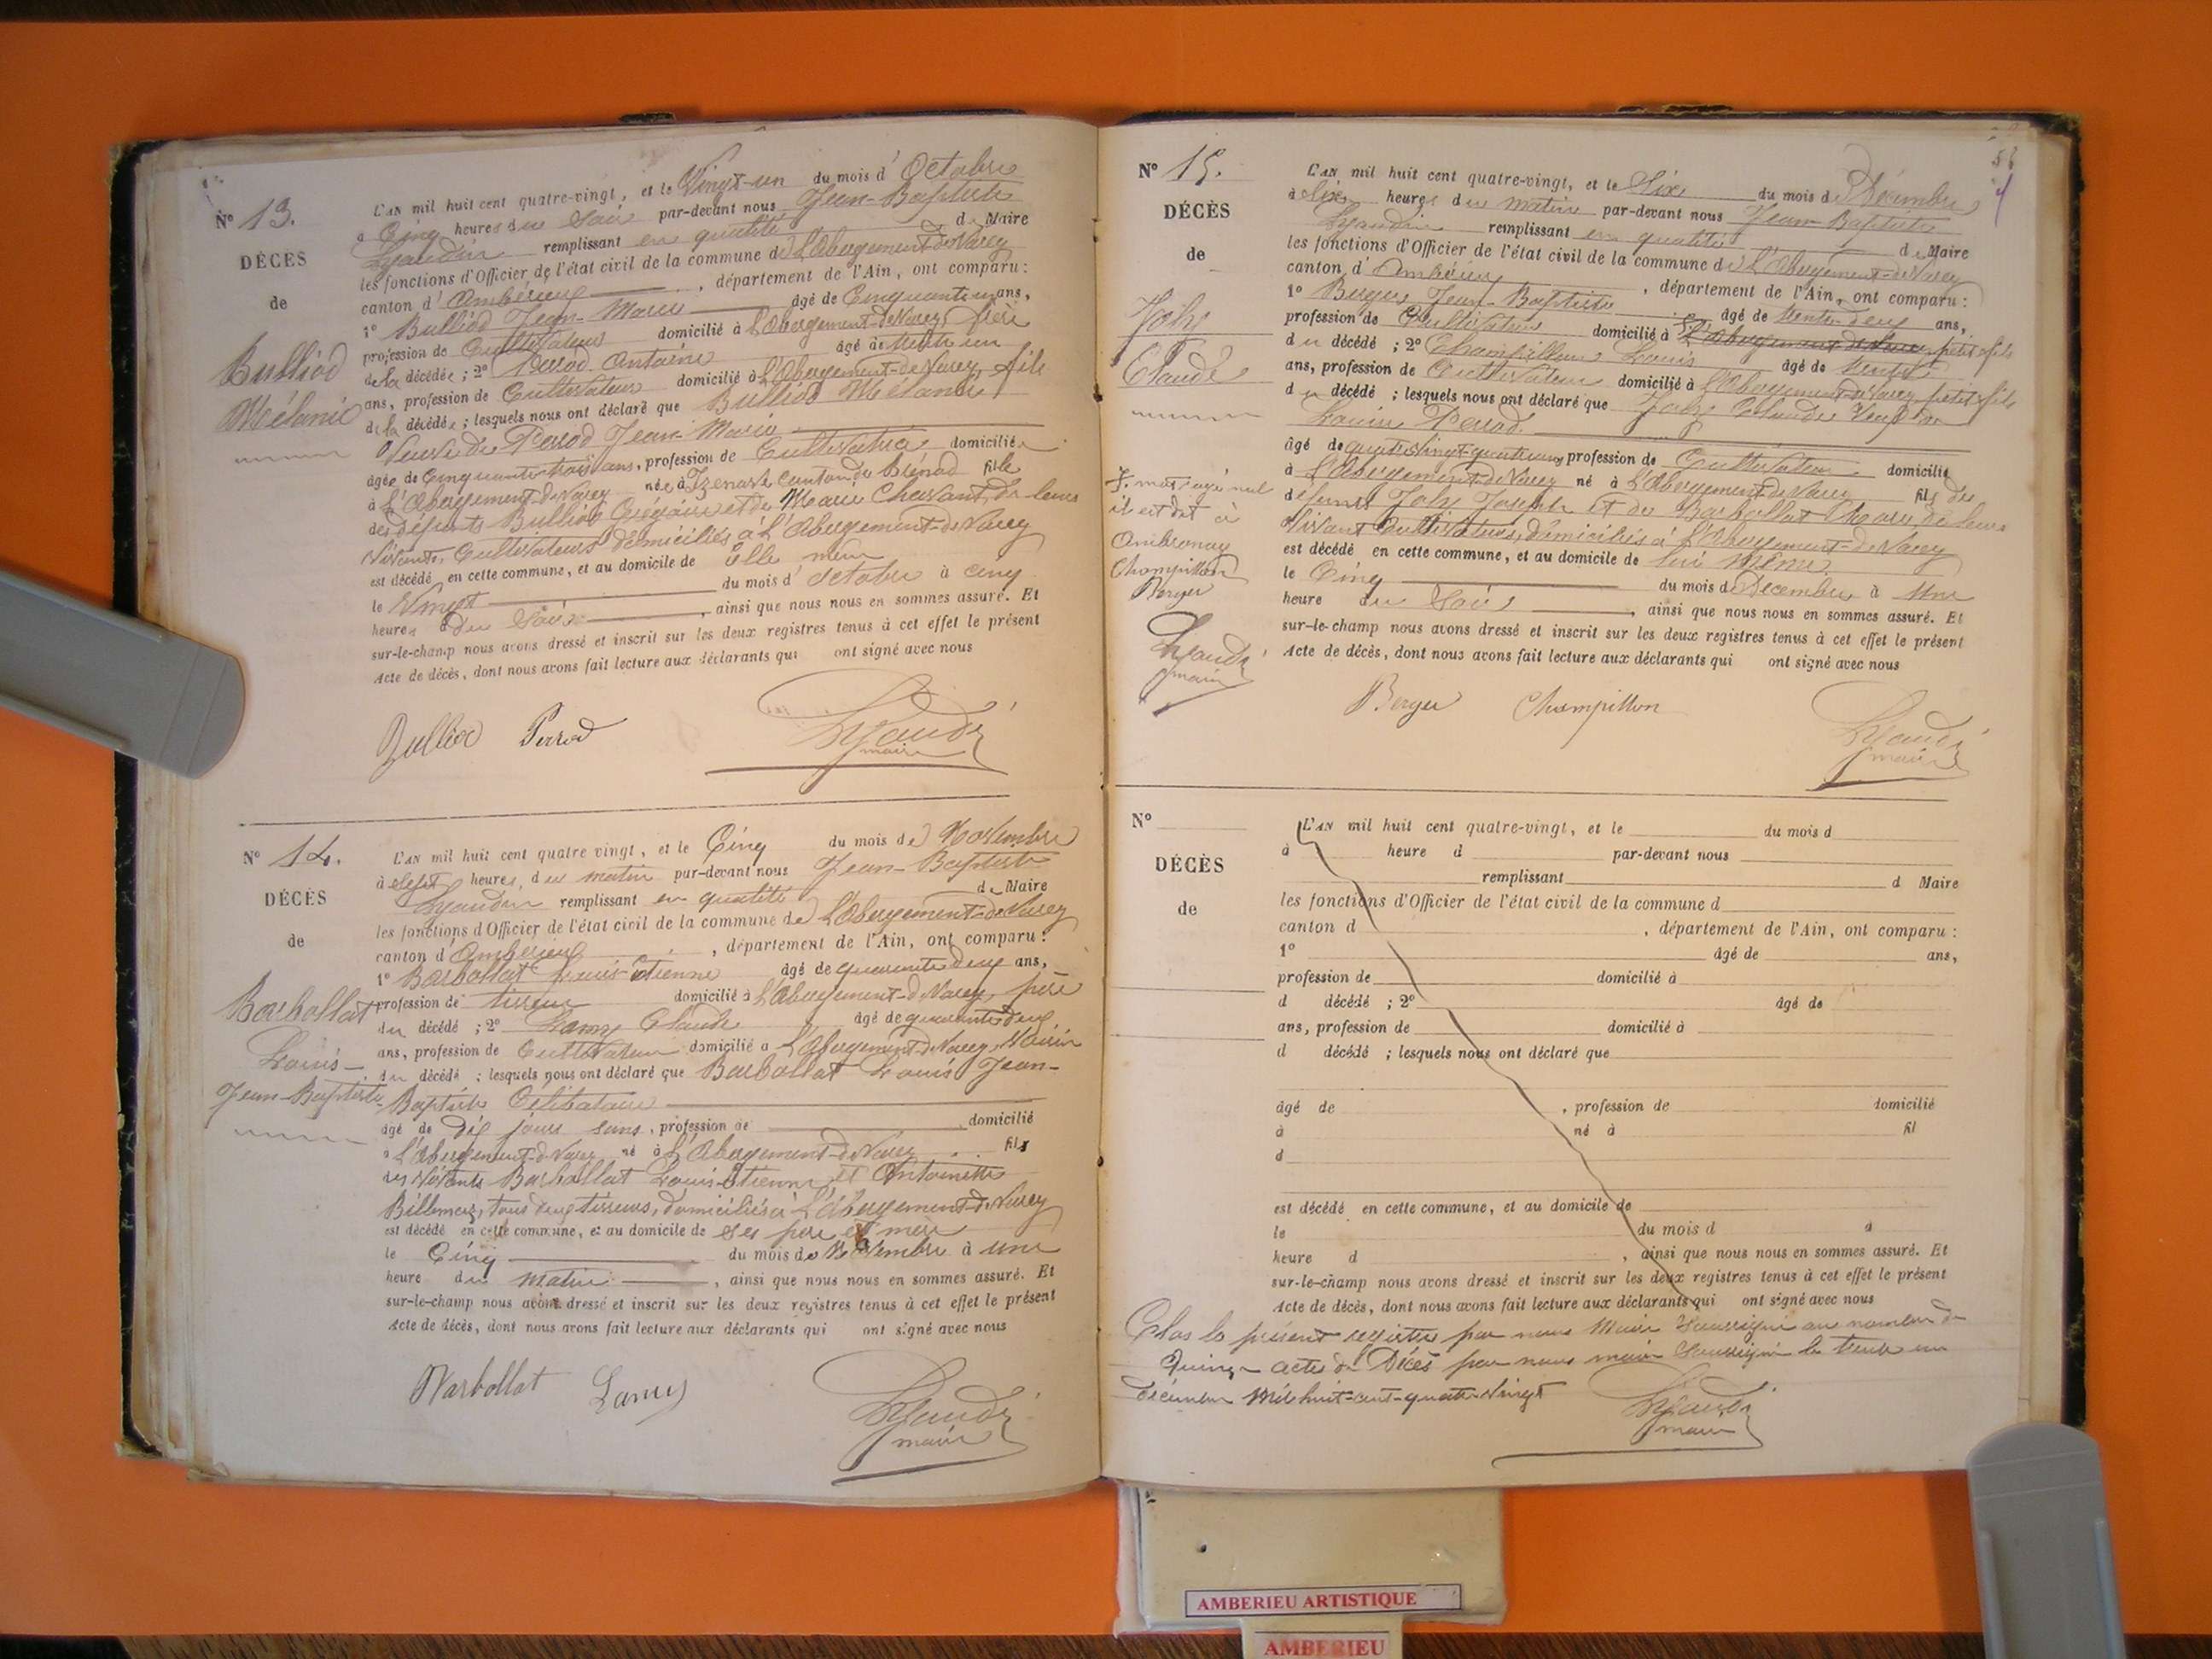 N° 13.
DÉCÈS
de
Bulliod
Mélanie
L'AN mil huit cent quatre-vingt, et le Vingt-un du mois d'Octobre
à Cinq heures du Soir par-devant nous Jean-Baptiste
remplissant en qualité de Maire
les fonctions d'Officier de l'état civil de la commune de L'Abergement-de-Varey
canton d'Ambérieu, département de l'Ain, ont comparu:
1° Bulliod Jean-Marie âgé de Cinquante un ans,
profession de Cultivateur domicilié à L'Abergement-de-Varey, frère
de la décédée; 2° Perrod Antoine âgé de trente un
ans, profession de Cultivateur domicilié à L'Abergement-de-Varey, fils
de la décédée; lesquels nous ont déclaré que Bulliod Mélanie
Veuve de Perrod Jean-Marie
âgée de Cinquante trois ans, profession de Cultivatrice domiciliée
à L'Abergement-de-Varey née à Izenave canton de Brénod fille
des défunts Bulliod et de Marie Chavant, de leurs
Vivants, Cultivateurs domiciliés à L'Abergement-de-Varey
est décédé en cette commune, et au domicile de Elle même
le Vingt du mois d'octobre à cinq
heures du Soir, ainsi que nous nous en sommes assuré. Et
sur-le-champ nous avons dressé et inscrit sur les deux registres tenus à cet effet le présent
Acte de décès, dont nous avons fait lecture aux déclarants qui ont signé avec nous
Bulliod Perrod
maire
N° 14.
DÉCÈS
de
Barbollat
Louis-
Jean-Baptiste
L'AN mil huit cent quatre vingt, et le Cinq du mois de Novembre
à Sept heures, du matin par-devant nous Jean-Baptiste
remplissant en qualité de Maire
les fonctions d'Officier de l'état civil de la commune de L'Abergement-de-Varey
canton d'Ambérieu, département de l'Ain, ont comparu:
1° Barbollat Louis-Etienne âgé de quarante deux ans,
profession de tisseur domicilié à L'Abergement-de-Varey, père
du décédé; 2° Lamy Claude âgé de quarante deux
ans, profession de Cultivateur domicilié à L'Abergement-de-Varey, Voisin
du décédé; lesquels nous ont déclaré que Barbollat Louis Jean-
Baptiste Célibataire
âgé de dix jours sans, profession de domicilié
à L'Abergement-de-Varey né à L'Abergement-de-Varey fils
des Vivants Barbollat Louis-Etienne et Antoinette
tous deux tisseurs, domiciliés à L'Abergement-de-Varey
est décédé en cette commune, et au domicile de ses père et mère
le Cinq du mois de Novembre à une
heure du matin, ainsi que nous nous en sommes assuré. Et
sur-le-champ nous avons dressé et inscrit sur les deux registres tenus à cet effet le présent
Acte de décès, dont nous avons fait lecture aux déclarants qui ont signé avec nous
Barbollat Lamy
maire
N° 15.
DÉCÈS
de
Joly
Claude
mot rayé nul
il est dit à
Ambronay
Champillon
Berger
maire
L'AN mil huit cent quatre-vingt, et le Six du mois de Décembre
à Six heures du matin par-devant nous Jean-Baptiste
remplissant en qualité de Maire
les fonctions d'Officier de l'état civil de la commune de L'Abergement-de-Varey
canton d'Ambérieu, département de l'Ain, ont comparu:
1° Berger Jean-Baptiste âgé de trente-deux ans,
profession de Cultivateur domicilié à L'Abergement-de-Varey petit-fils
du décédé; 2° Champillon Louis âgé de trente
ans, profession de Cultivateur domicilié à L'Abergement-de-Varey petit-fils
du décédé; lesquels nous ont déclaré que Joly Claude Veuf de
Louise Perrod
âgé de quatre vingt-quatre ans, profession de Cultivateur domicilié
à L'Abergement-de-Varey né à L'Abergement-de-Varey fils des
défunts Joly Joseph et de Barbollat Marie, de leurs
Vivant Cultivateurs, domiciliés à L'Abergement-de-Varey
est décédé en cette commune, et au domicile de lui même
le Cinq du mois de Décembre à Une
heure du Soir, ainsi que nous nous en sommes assuré. Et
sur-le-champ nous avons dressé et inscrit sur les deux registres tenus à cet effet le présent
Acte de décès, dont nous avons fait lecture aux déclarants qui ont signé avec nous
Berger Champillon
maire
N°
DÉCÈS
de
L'AN mil huit cent quatre-vingt, et le du mois d
à heure d par-devant nous
remplissant d Maire
les fonctions d'Officier de l'état civil de la commune d
canton d , département de l'Ain, ont comparu:
1° âgé de ans,
profession de domicilié à
d décédé; 2° âgé de
ans, profession de domicilié à
d décédé; lesquels nous ont déclaré que
âgé de , profession de domicilié
à né à fil
d
est décédé en cette commune, et au domicile de
le du mois d à
heure d , ainsi que nous nous en sommes assuré. Et
sur-le-champ nous avons dressé et inscrit sur les deux registres tenus à cet effet le présent
Acte de décès, dont nous avons fait lecture aux déclarants qui ont signé avec nous
Clos le présent registre par nous Maire Soussigné au nombre de
Quinze acte de Décès par nous maire Soussigné le trente un
Décembre Mil huit-cent-quatre-Vingt
maire
AMBERIEU ARTISTIQUE
AMBERIEU